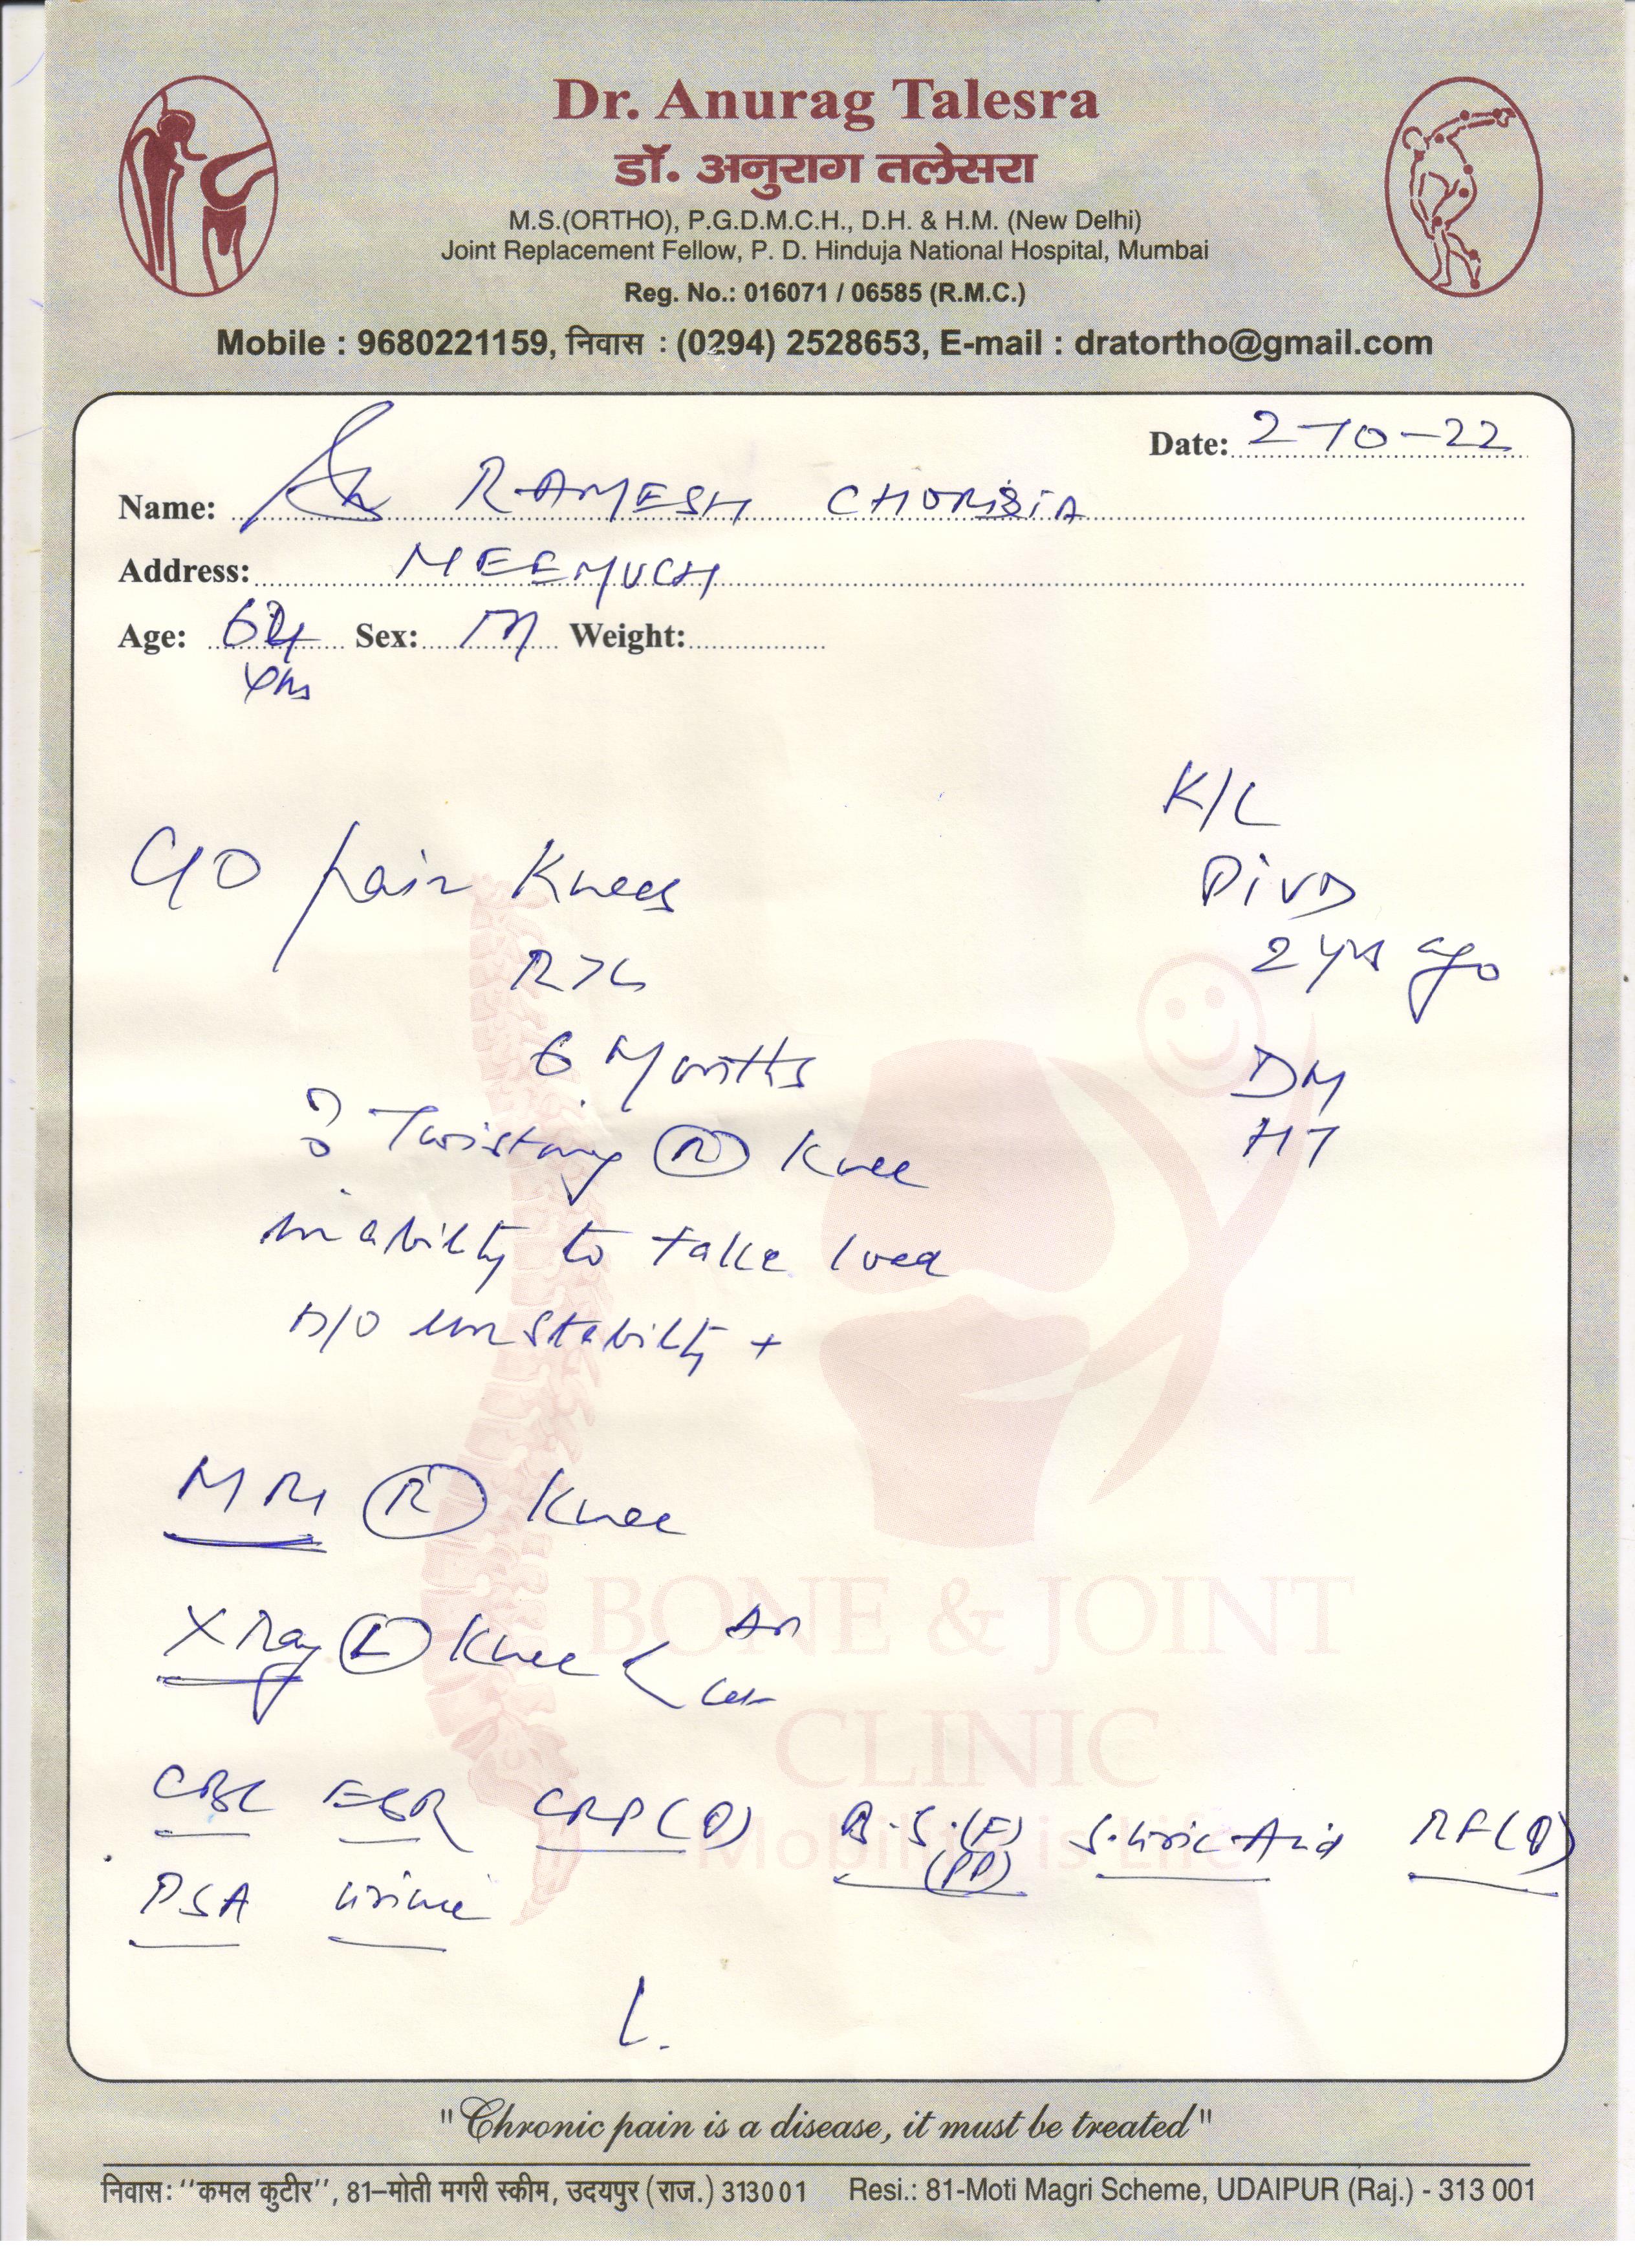 Dr. Anurag Talesra
डॉ. अनुराग तलेसरा
M.S.(ORTHO), P.G.D.M.C.H., D.H. & H.M. (New Delhi)
Joint Replacement Fellow, P. D. Hinduja National Hospital, Mumbai
Reg. No.: 016071 / 06585 (R.M.C.)
Mobile : 9680221159, निवास : (0294) 2528653, E-mail : dratortho@gmail.com
Date: 2-10-22
Name: RAMESH CHORDIA
Address: NEEMUCH
Age: Sex: M Weight:
yrs
K/C
PIVD
2 yrs ago
DM
HT
C/O pain Knees
R>L
6 Months
? Twisting (R) Knee
inability to take load
instability +
MRI (R) Knee
X Ray (L) Knee < AP
Lat
CBC ESR CRP(Q) B.S.(F) S.Uric Acid RF(Q)
(PP)
PSA Urine
BONE & JOINT
CLINIC
Mobility is Life
"Chronic pain is a disease, it must be treated"
निवास: ''कमल कुटीर'', 81–मोती मगरी स्कीम, उदयपुर (राज.) 313001 Resi.: 81-Moti Magri Scheme, UDAIPUR (Raj.) - 313 001